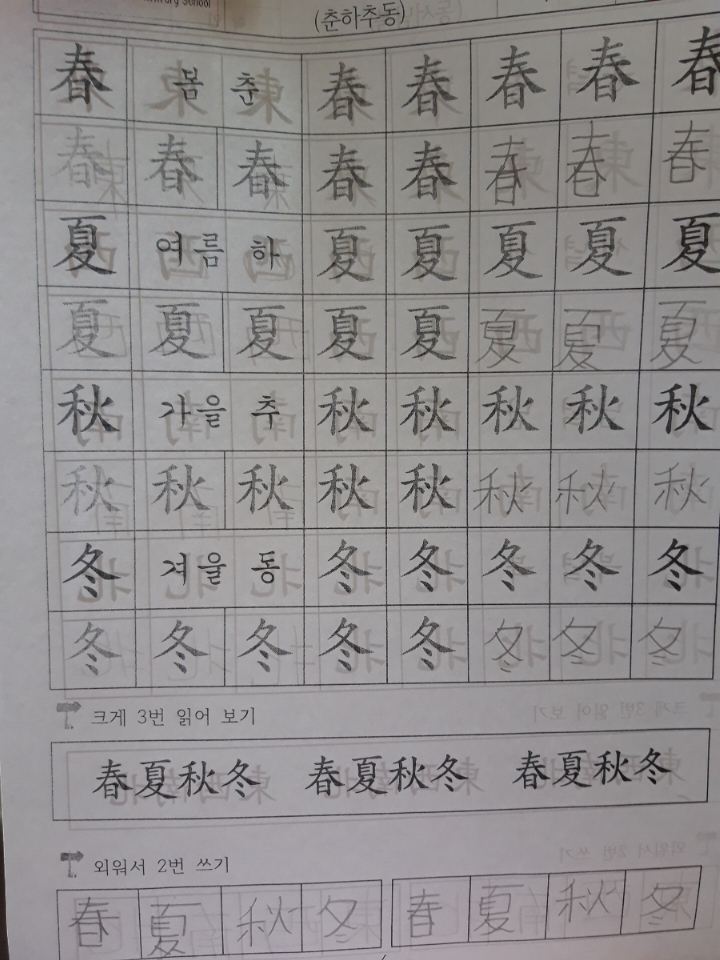 School
(춘하추동)
春 봄 춘 春 春 春 春 春
春 春 春 春 春 春 春 春
夏 여름 하 夏 夏 夏 夏 夏
夏 夏 夏 夏 夏 夏 夏 夏
秋 가을 추 秋 秋 秋 秋 秋
秋 秋 秋 秋 秋 秋 秋 秋
冬 겨울 동 冬 冬 冬 冬 冬
冬 冬 冬 冬 冬 冬 冬 冬
크게 3번 읽어 보기
春夏秋冬 春夏秋冬 春夏秋冬
외워서 2번 쓰기
春 夏 秋 冬 春 夏 秋 冬